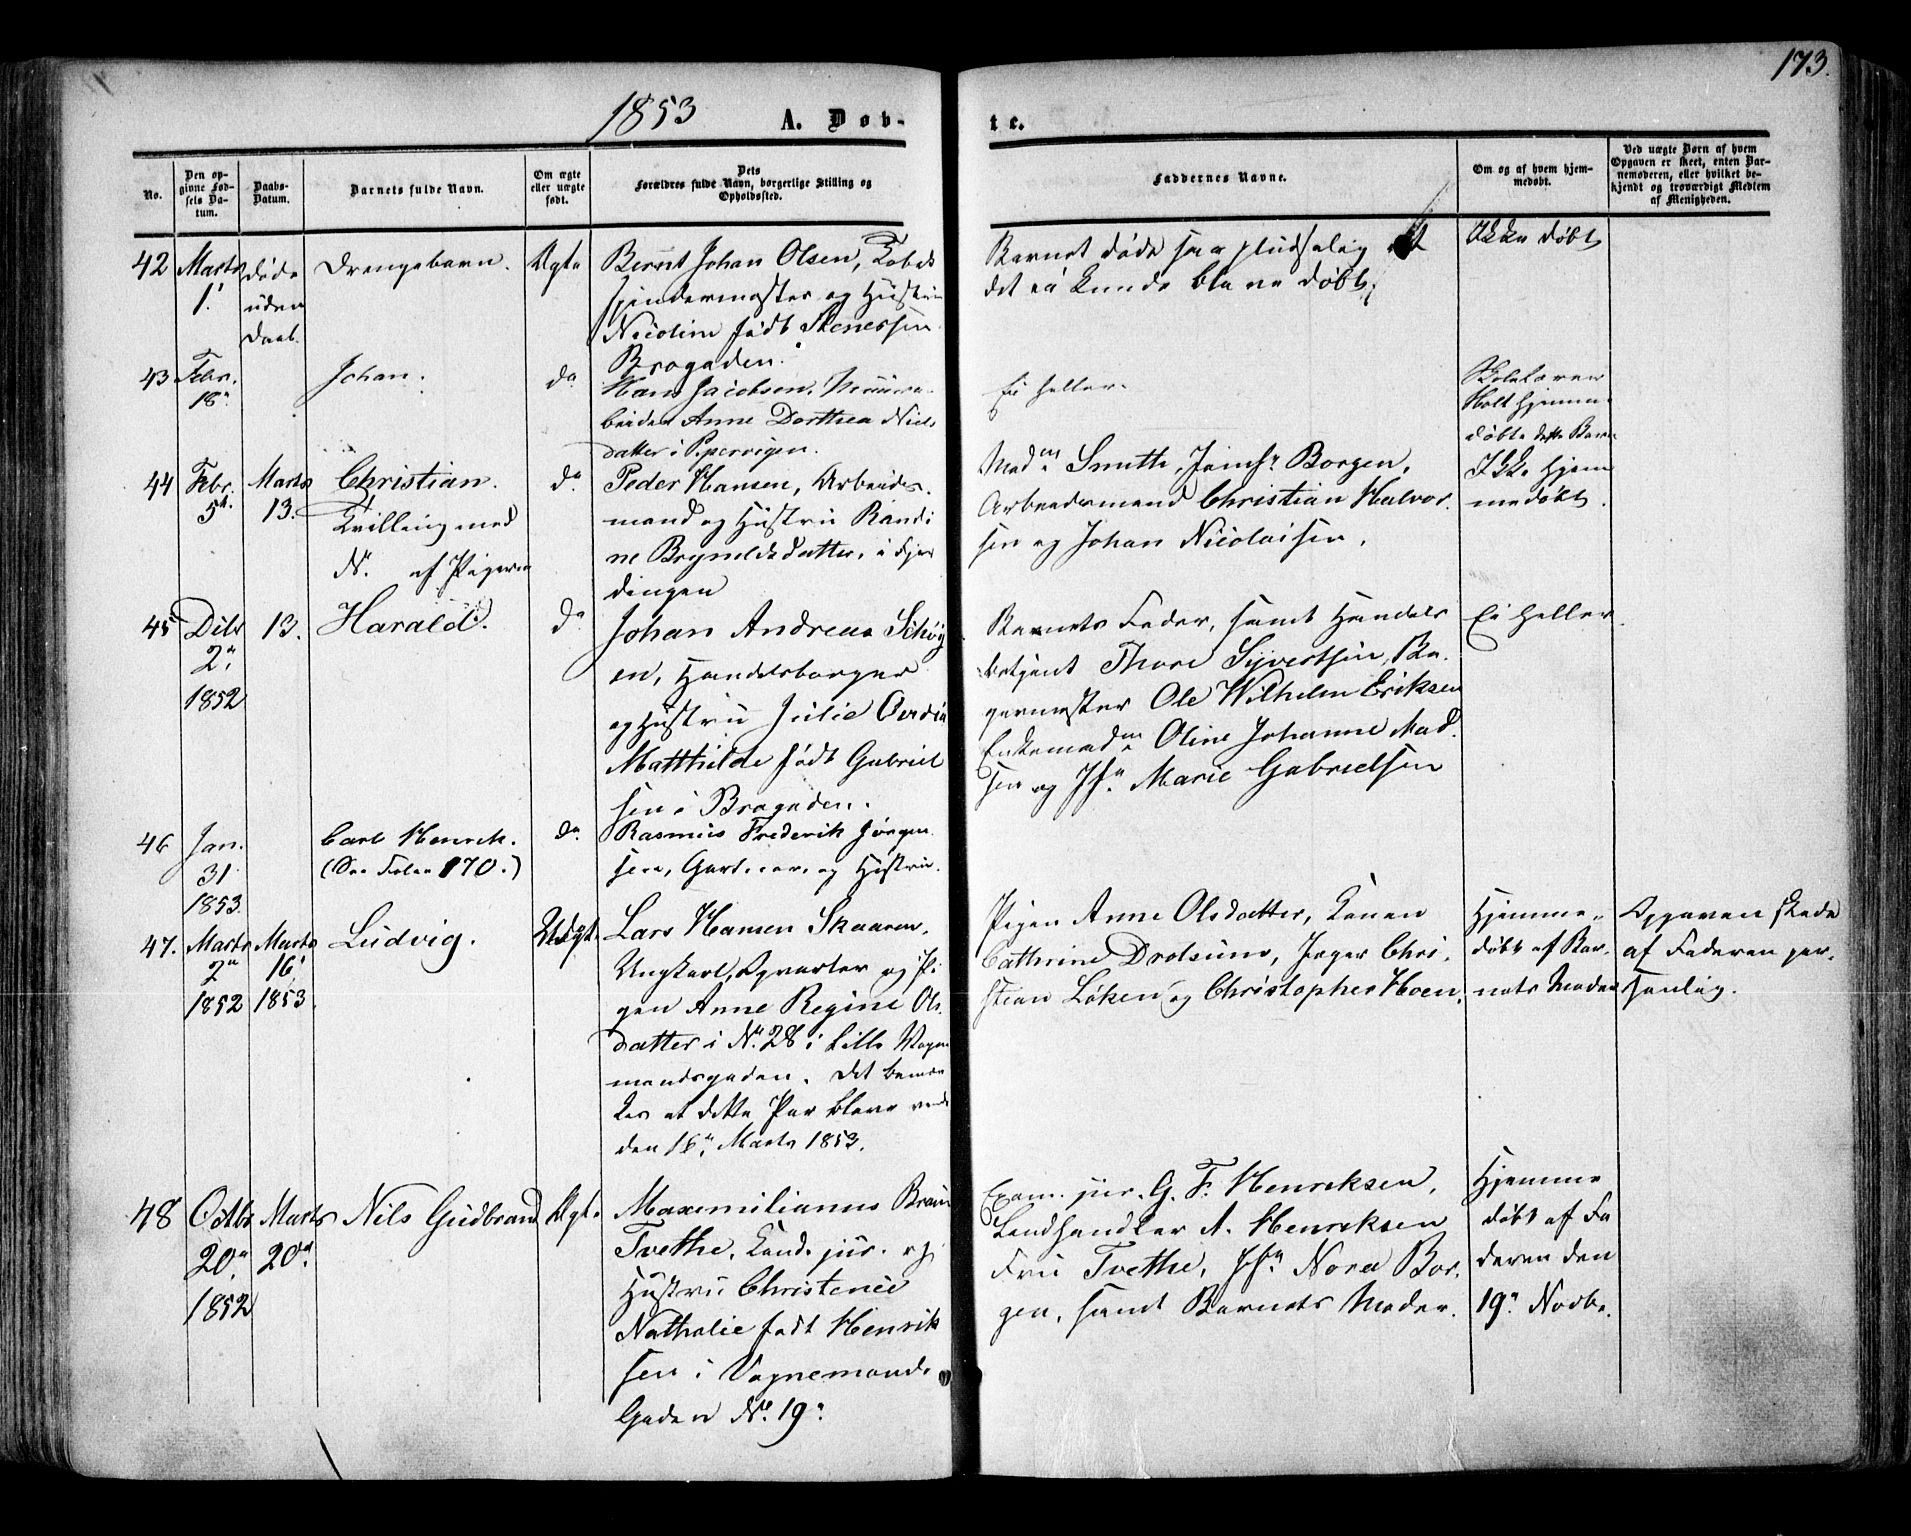 173.
1853 A. Døb-
te.
No.
Den op-
givne Fød-
sels Da-
tum.
Daabs-
Datum.
Barnets fulde Navn.
Om ægte
eller uægte
født.
Dets
Forældres fulde Navn, borgerlige Stilling og
Opholdssted.
Faddernes Navne.
Om og af hvem hjem-
medøbt.
Ved uægte Børn af hvem
Opgaven er skeet, enten Bar-
nemoderen, eller hvilket be-
kjendt og troværdigt Medlem
af Menigheden.
42
Marts
1.
døde
uden
Daab.
Drengebarn.
Ægte
Bernt Johan Olsen,
og Hustru
Nicoline født Stenersen
Bragaden.
Barnet døde saa pludselig at
det ei kunde blive døbt,
Ikke døbt
43
Febr.
18.
Johan.
do
Hans Jacobsen,
Anne Dorthea Niels
datter i Pipervigen.
Ei heller.
Skolelærer
Holt hjemme-
døbte dette Barn
44
Febr.
5.
Marts
13.
Christian.
Tvilling med
N. af Pigerne
do
Peder Hansen, Arbeids-
mand og Hustru Randi
ne Bryneldsdatter, i Fjer
dingen
Madm Smith, Jomfr. Borgen,
Arbeidsmand Christian Halvor-
sen og Johan Nicolaisen.
Ikke hjem
medøbt.
45
2.
1852
13.
Harald.
do
Johan Andreas Schøy
en, Handelsborger
og Hustru Julie
Matthilde født Gabriel
sen i Bragaden.
Barnets Fader, samt Handels
betjent Thore Syvertsen, Ba-
germester Ole Wilhelm Eriksen
Enkemadm Oline Johanne Mad-
sen og Jfr. Marie Gabrielsen
Ei heller
46
Jan.
31
1853.
Carl Henrik.
(See Folio 170.)
do
Rasmus Frederik Jørgen
sen, Gartner, og Hustru.
47.
Marts
2
1852
Marts
16
1853.
Ludvig.
Uægt.
Lars Hansen Skaaren,
Ungkarl, Opvarter og Pi
gen Anne Regine Ols
datter i No. 28 i Lille Vogn
mandsgaden. Det bemær
kes at dette Par bleve viede
den 18. Marts 1853.
Pigen Anne Olsdatter, Konen
Cathrine Drolsum, Jæger Chri-
stian Løken og Christopher Hoen.
Hjemme-
døbt af Bar-
nets Moder
Opgaven skede
af Faderen per-
sonlig.
48
Octbr
20.
1852
Marts
20.
Nils Gudbrand
Ægte
Maximilianus Braun
Tvethe, Cand. jur. og
Hustru Christence
Nathalie født Henrik
sen i Vognemands
Gaden No. 19.
Exam. jur. G. F. Henriksen,
Landhandler A. Henriksen
Fru Tvethe, Jfr. Nora Bor-
gen, samt Barnets Moder.
Hjemme
døbt af Fa
deren den
19. Novbr.